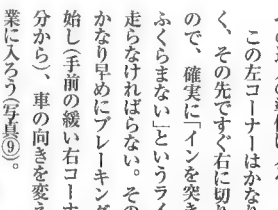 この左コーナーはかなり
く、その先ですぐ右に切り
ので、確実に「インを突き
ふくらまない」というライ
走らなければらない。その
かなり早めにブレーキング
始し(手前の緩い右コーナ
分から)、車の向きを変え
業に入ろう(写真⑨)。